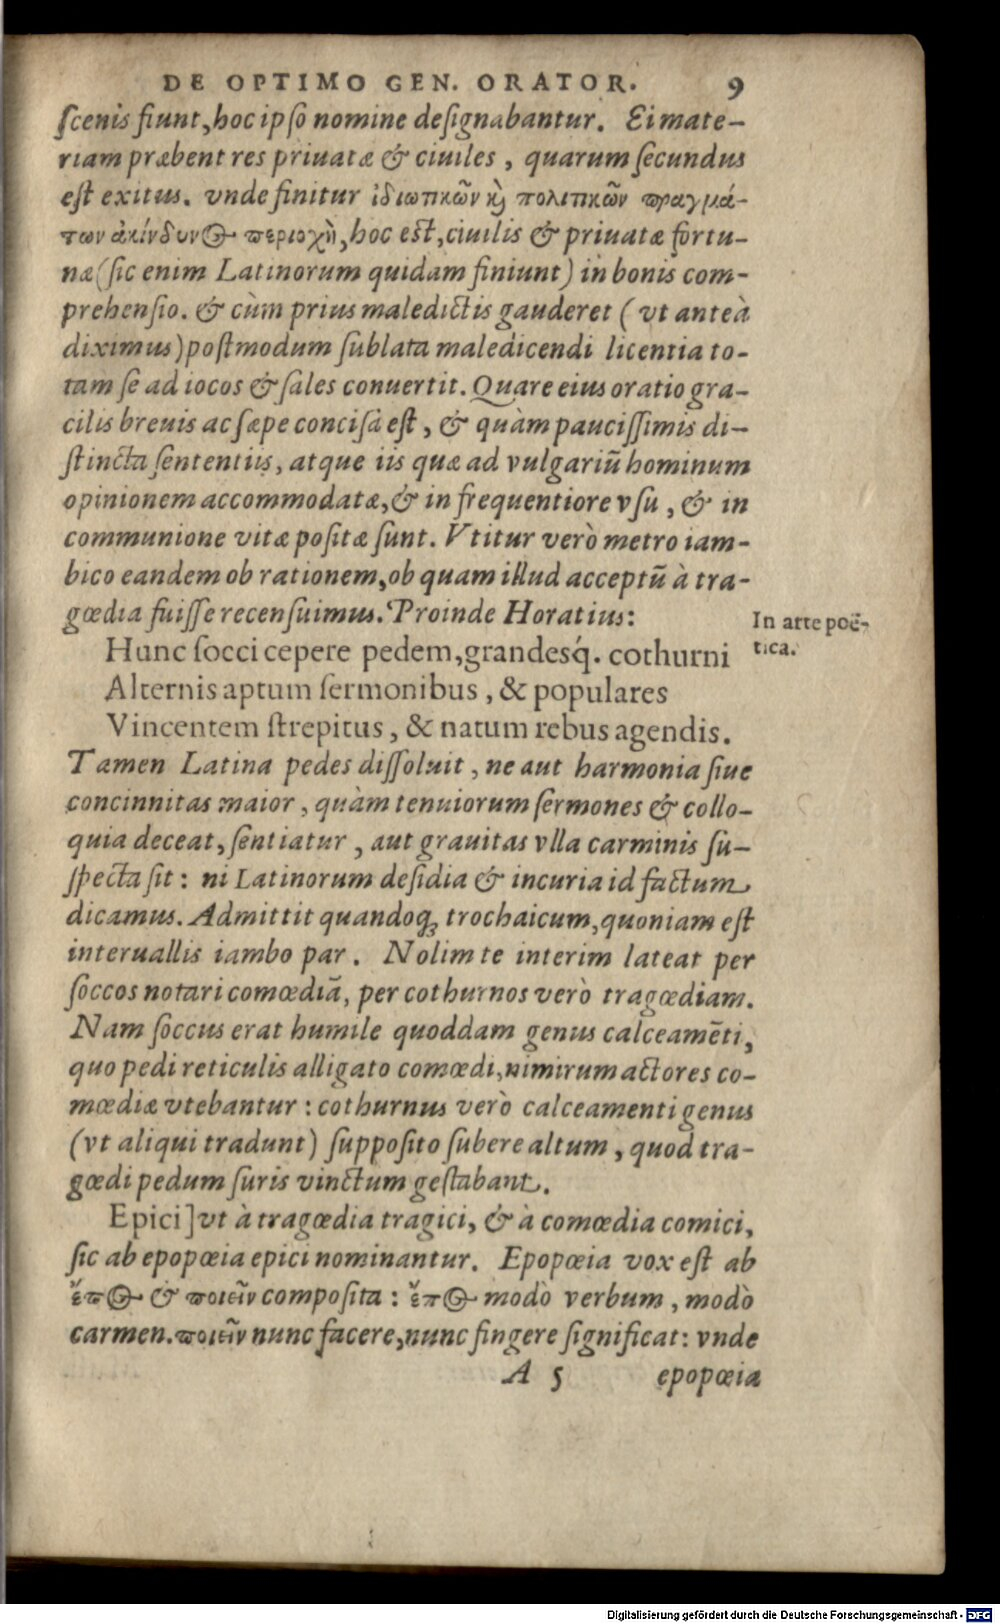 DE OPTIMO GEN. ORATOR. 9
ſcenis fiunt, hoc ipſo nomine deſignabantur. Ei mate-
riam præbent res priuatæ & ciuiles, quarum ſecundus
eſt exitus. vnde finitur ἰδιωτικῶν κὴ πολιτικῶν πραγμά-
των ἀκίνδυνος περιοχὴ, hoc eſt, ciuilis & priuatæ fortu-
næ (ſic enim Latinorum quidam finiunt) in bonis com-
prehenſio. & cùm prius maledictis gauderet (vt anteà
diximus) poſtmodum ſublata maledicendi licentia to-
tam ſe ad iocos & ſales conuertit. Quare eius oratio gra-
cilis breuis ac ſæpe conciſa eſt, & quàm pauciſſimis di-
ſtincta ſententiis, atque iis quæ ad vulgariũ hominum
opinionem accommodatæ, & in frequentiore vſu, & in
communione vitæ poſitæ ſunt. Vtitur verò metro iam-
bico eandem ob rationem, ob quam illud acceptũ à tra-
gœdia fuiſſe recenſuimus. Proinde Horatius:
In arte poë-
tica.
Hunc ſocci cepere pedem, grandesq́. cothurni
Alternis aptum ſermonibus, & populares
Vincentem ſtrepitus, & natum rebus agendis.
Tamen Latina pedes diſſoluit, ne aut harmonia ſiue
concinnitas maior, quàm tenuiorum ſermones & collo-
quia deceat, ſentiatur, aut grauitas vlla carminis ſu-
ſpecta ſit: ni Latinorum deſidia & incuria id factum
dicamus. Admittit quandoq; trochaicum, quoniam eſt
interuallis iambo par. Nolim te interim lateat per
ſoccos notari comœdiã, per cothurnos verò tragœdiam.
Nam ſoccus erat humile quoddam genus calceamẽti,
quo pedi reticulis alligato comœdi, nimirum actores co-
mœdiæ vtebantur: cothurnus verò calceamenti genus
(vt aliqui tradunt) ſuppoſito ſubere altum, quod tra-
gœdi pedum ſuris vinctum geſtabant.
Epici] vt à tragœdia tragici, & à comœdia comici,
ſic ab epopœia epici nominantur. Epopœia vox eſt ab
ἔπος & ποιεῖν compoſita: ἔπος modò verbum, modò
carmen. ποιεῖν nunc facere, nunc fingere ſignificat: vnde
A 5 epopœia
Digitalisierung gefördert durch die Deutsche Forschungsgemeinschaft - DFG